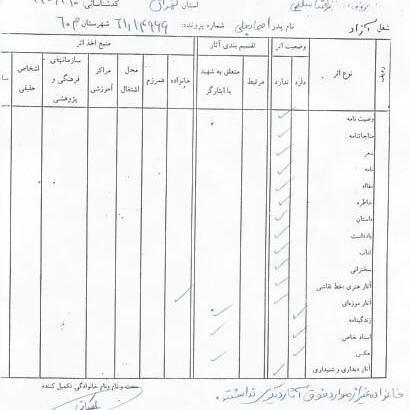 استان تهران کدشناسائی
شغل آزاد نام پدر شماره پرونده: شهرستان
ردیف نوع اثر وضعیت اثر تقسیم بندی آثار منبع اخذ اثر
دارد ندارد مرتبط متعلق به شهید با ایثارگر خانواده همرزم محل اشتغال مراکز آموزشی سازمانهای فرهنگی و پژوهشی اشخاص حقیقی
وصیت نامه
مناجاتنامه
شعر
نامه
مقاله
خاطره
داستان
یادداشت
کتاب
سخنرانی
آثار هنری بخط نقاشی
آثار موزه‌ای
زندگینامه
اسناد خاص
عکس
آثار دیداری و شنیداری
سمت و نام و نام خانوادگی تکمیل کننده
خانواده غیر از موارد فوق آثار دیگری نداشتند.